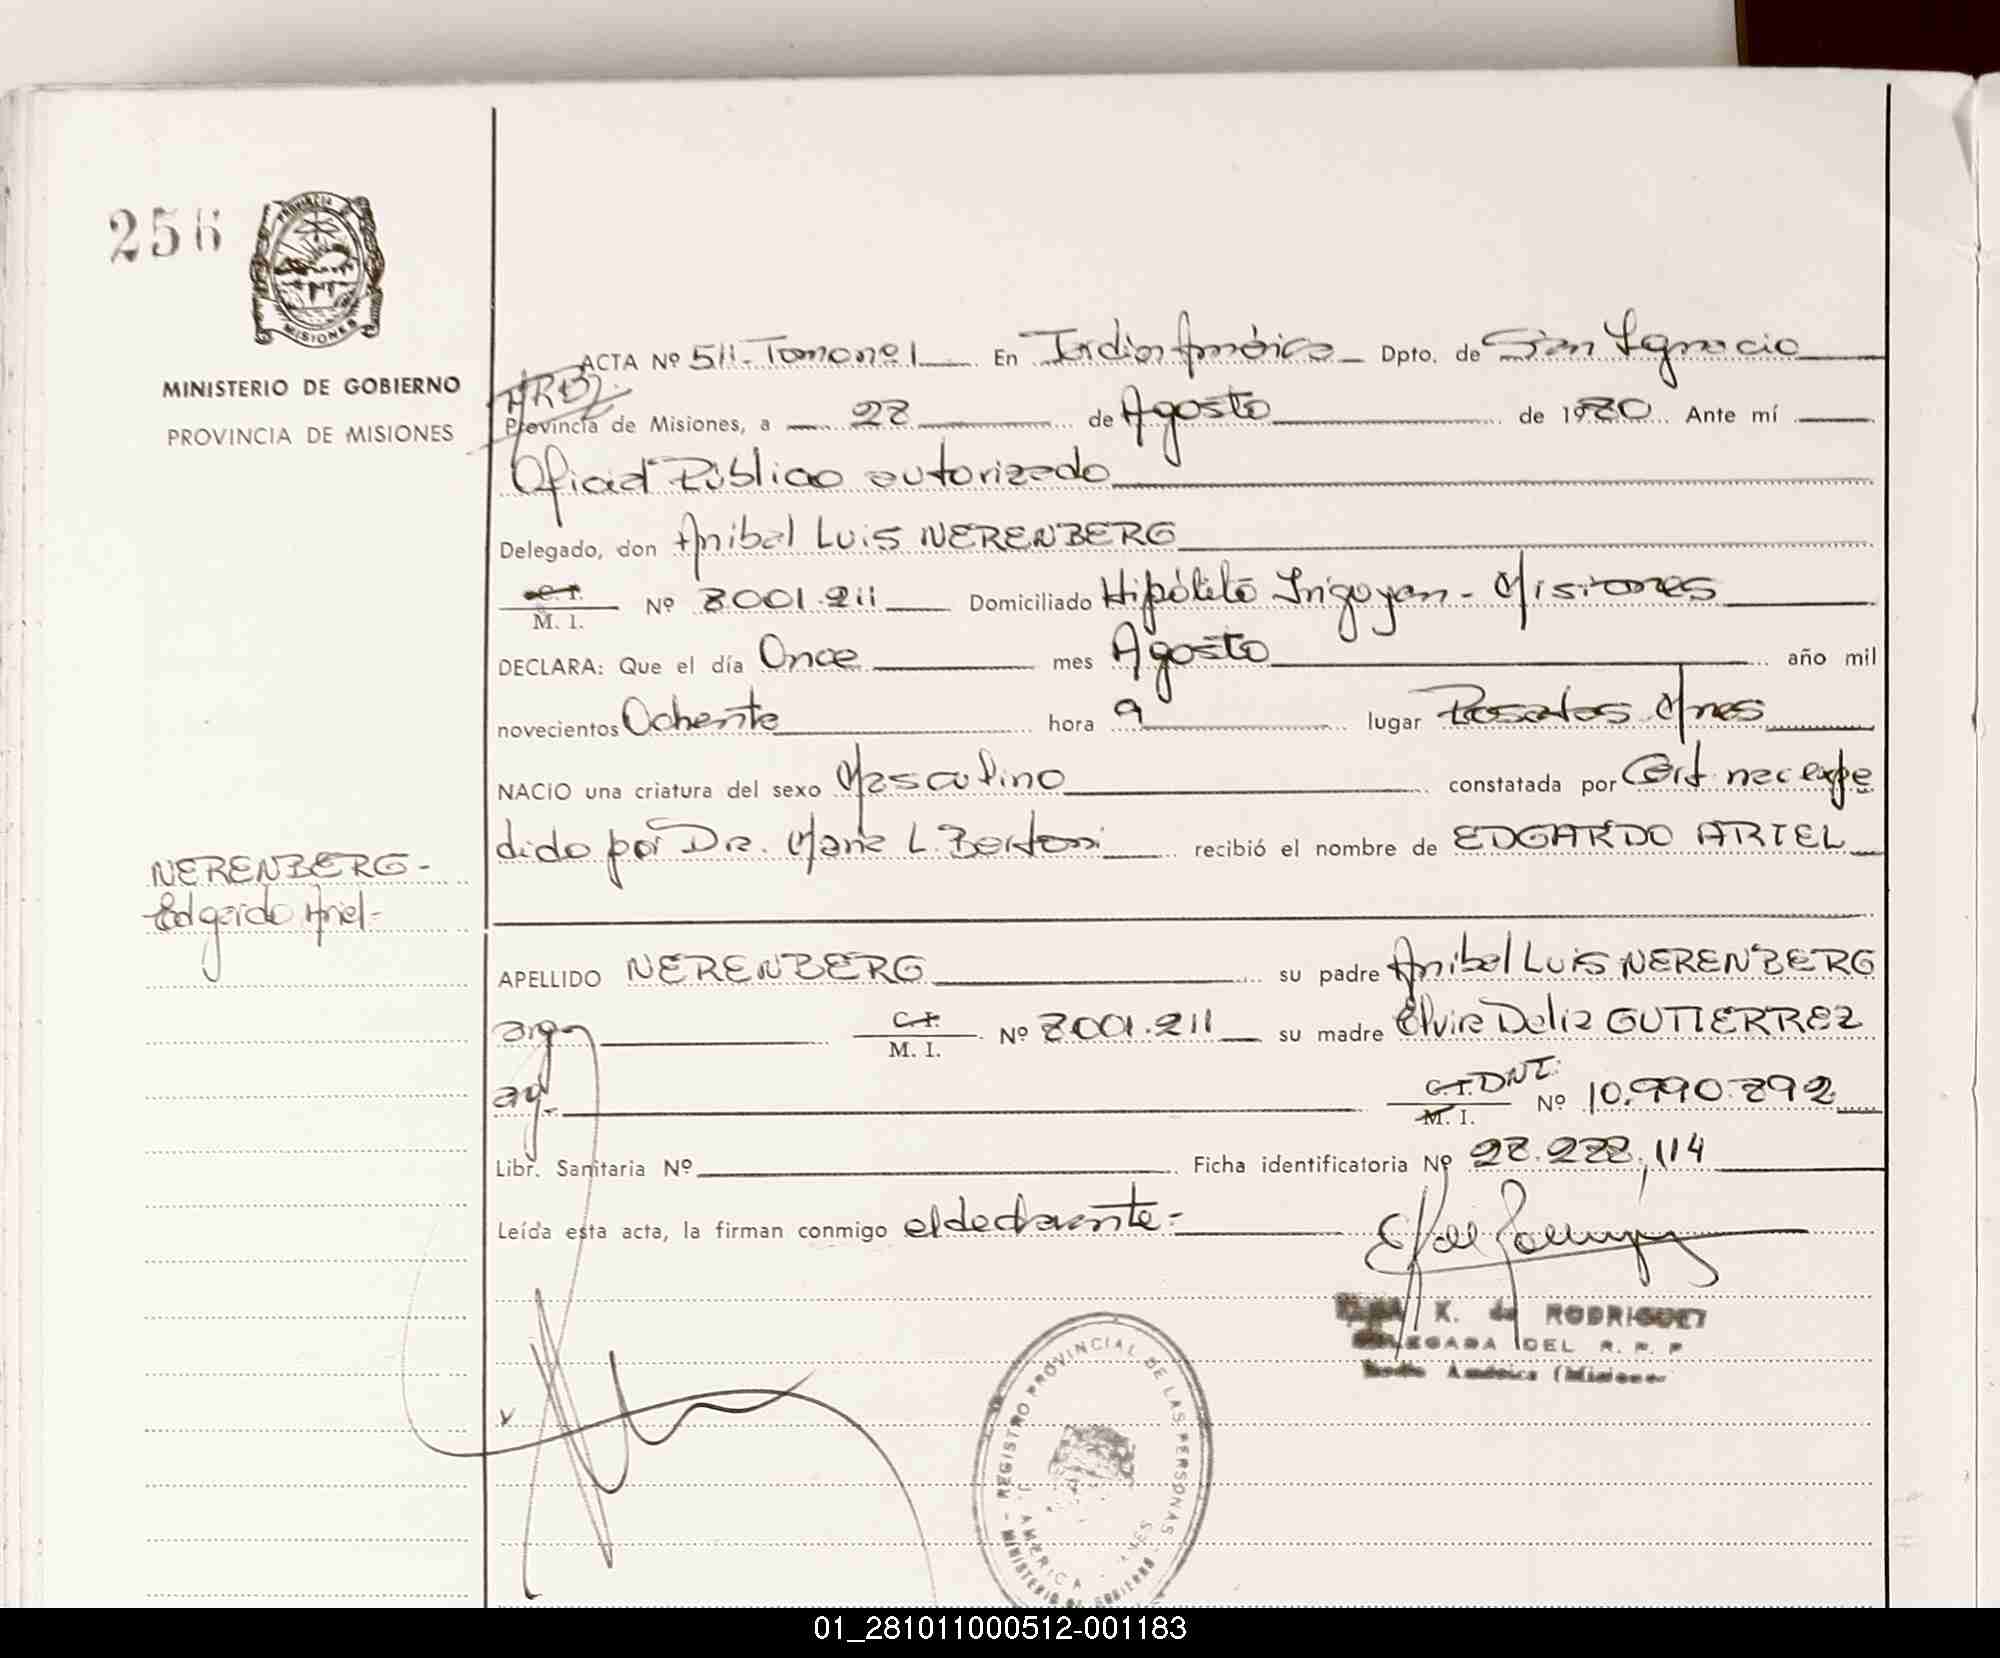 256
PROVINCIA
MISIONES
MINISTERIO DE GOBIERNO
PROVINCIA DE MISIONES
ACTA Nº 511-Tomo nº 1 En Jardín América Dpto. de San Ignacio
Provincia de Misiones, a 28 de Agosto de 1980 Ante mí
Oficial Público autorizado
Delegado, don Anibal Luis NERENBERG
C.I.
M. I. Nº 8001.211 Domiciliado Hipólito Irigoyen - Misiones
DECLARA: Que el día Once mes Agosto año mil
novecientos Ochenta hora 9 lugar Posadas Mnes
NACIO una criatura del sexo Masculino constatada por Cert. nac expe
dido por Dra. Maria L. Bertoni recibió el nombre de EDGARDO ARIEL
NERENBERG-
Edgardo Ariel-
APELLIDO NERENBERG su padre Anibal Luis NERENBERG
arg. C.I. M. I. Nº 8001.211 su madre Elvira Delia GUTIERREZ
arg. C.I. DNI. M. I. Nº 10.990.892
Libr. Sanitaria Nº Ficha identificatoria Nº 28.288.114
Leída esta acta, la firman conmigo el declarante=
K. de RODRIGUEZ
DELEGADA DEL R. P. P
América (Misiones
REGISTRO PROVINCIAL DE LAS PERSONAS - MINISTERIO DE GOBIERNO -
J. AMERICA - MNES
01_281011000512-001183